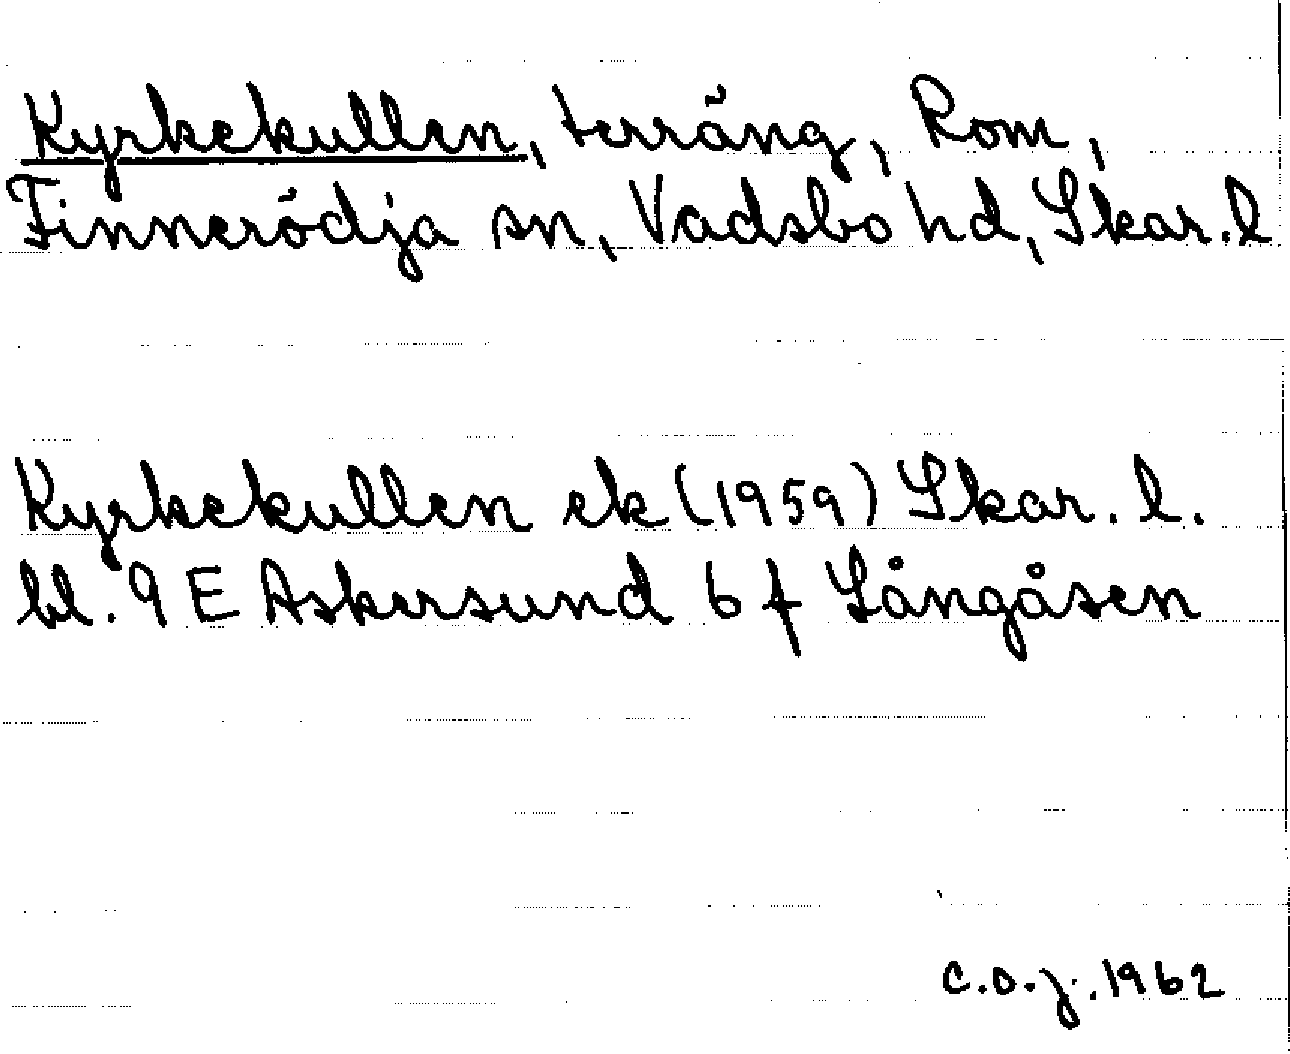 Kyrkekullen, terräng, Rom,
Finnerödja sn, Vadsbo hd, Skar. l
Kyrkekullen ek (1959) Skar. l.
bl. 9 E Askersund 6 f Långåsen
C.O.J. 1962